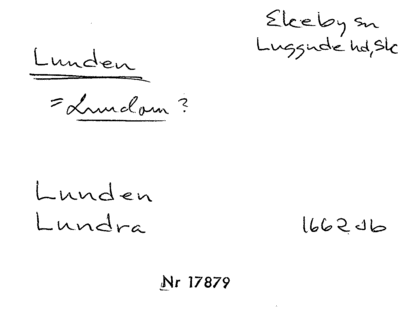 Ekeby sn
Luggude hd, Sk
Lunden
= Lundom ?
Lunden
Lundra 1662 Jb
Nr 17879